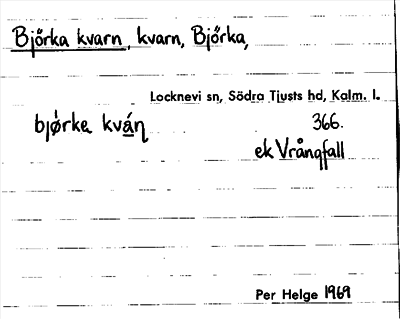 Björka kvarn, kvarn, Björka,
Locknevi sn, Södra Tjusts hd, Kalm. l.
bjørke kván 366.
ek Vrångfall
Per Helge 1969